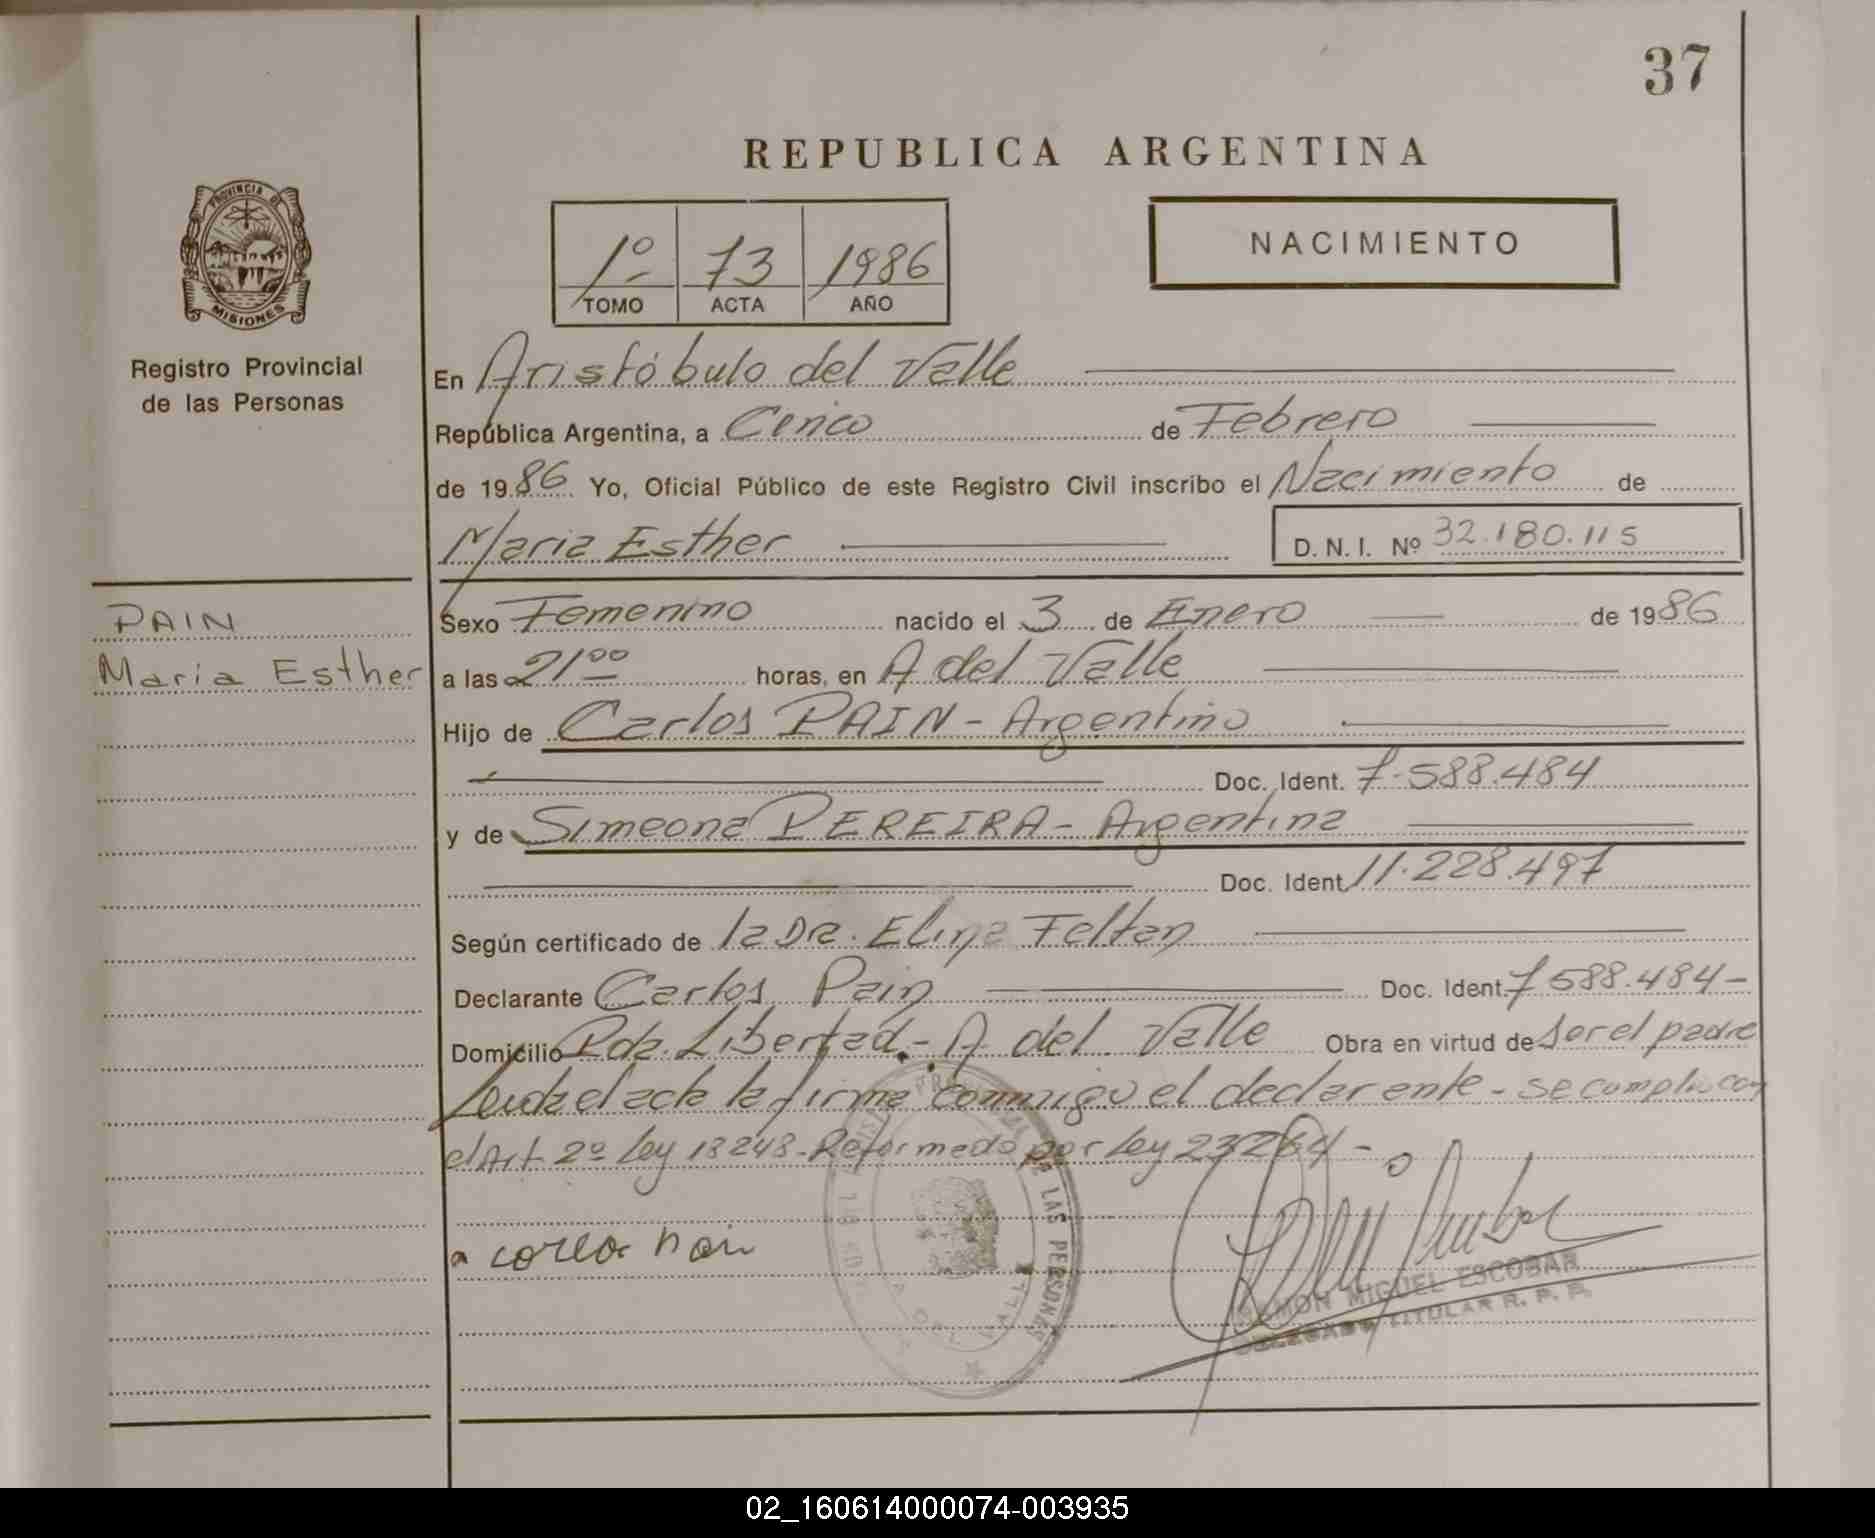 37
REPUBLICA ARGENTINA
PROVINCIA DE
MISIONES
1º TOMO 73 ACTA 1986 AÑO
NACIMIENTO
Registro Provincial
de las Personas
En Aristóbulo del Valle
República Argentina, a Cinco de Febrero
de 1986 Yo, Oficial Público de este Registro Civil inscribo el Nacimiento de
Maria Esther D.N.I. Nº 32.180.115
PAIN
Maria Esther
Sexo Femenino nacido el 3 de Enero de 1986
a las 21 00 horas, en A del Valle
Hijo de Carlos PAIN - Argentino
Doc. Ident. 7.588.484
y de Simeona PEREIRA - Argentina
Doc. Ident. 11.228.497
Según certificado de la Dra. Elina Feltan
Declarante Carlos Pain Doc. Ident. 7588.484-
Domicilio Pda. Libertad - A del Valle Obra en virtud de ser el padre
Leida el acta la firma conmigo el declarante - se cumplio con
el Art 2º Ley 18248 - Reformado por Ley 23264 -
LAS PERSONAS
RAMON MIGUEL ESCOBAR
DELEGADO TITULAR R. P. P.
02_160614000074-003935